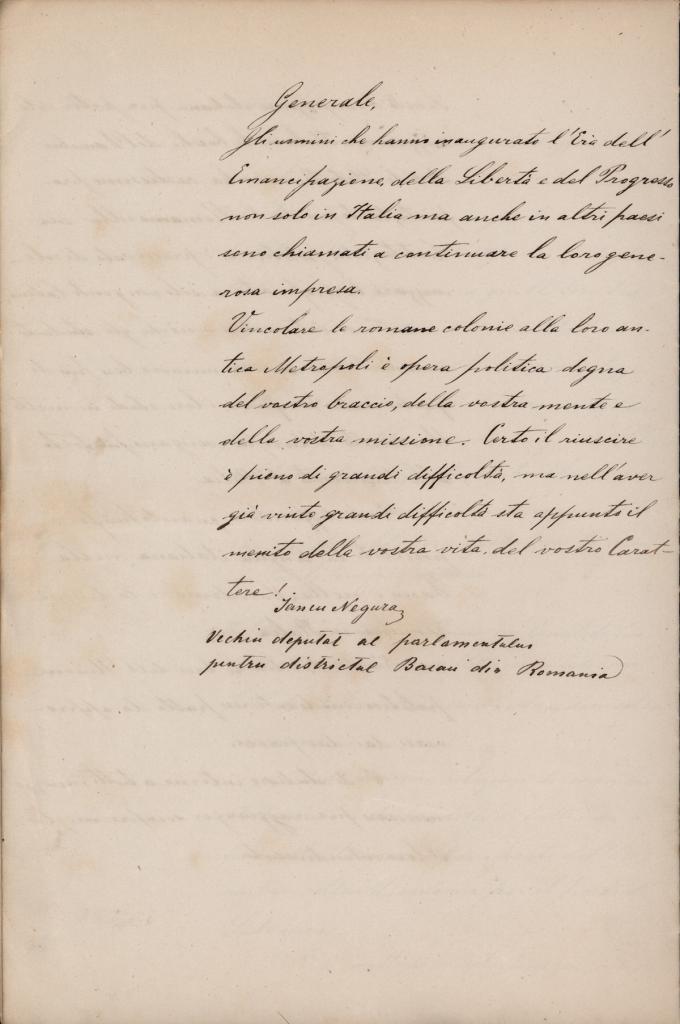 Generale,
Gli uomini che hanno inaugurato l'Era dell'
Emancipazione, della Libertà e del Progresso
non solo in Italia ma anche in altri paesi
sono chiamati a continuare la loro gene-
rosa impresa.
Vincolare le romane colonie alla loro an-
tica Metropoli è opera politica degna
del vostro braccio, della vostra mente e
della vostra missione. Certo il riuscire
è pieno di grandi difficoltà, ma nell'aver
già vinte grandi difficoltà sta appunto il
merito della vostra vita, del vostro Carat-
tere!
Iancu Negura
Vechiu deputat al parlamentului
pentru districtul Bacau din Romania